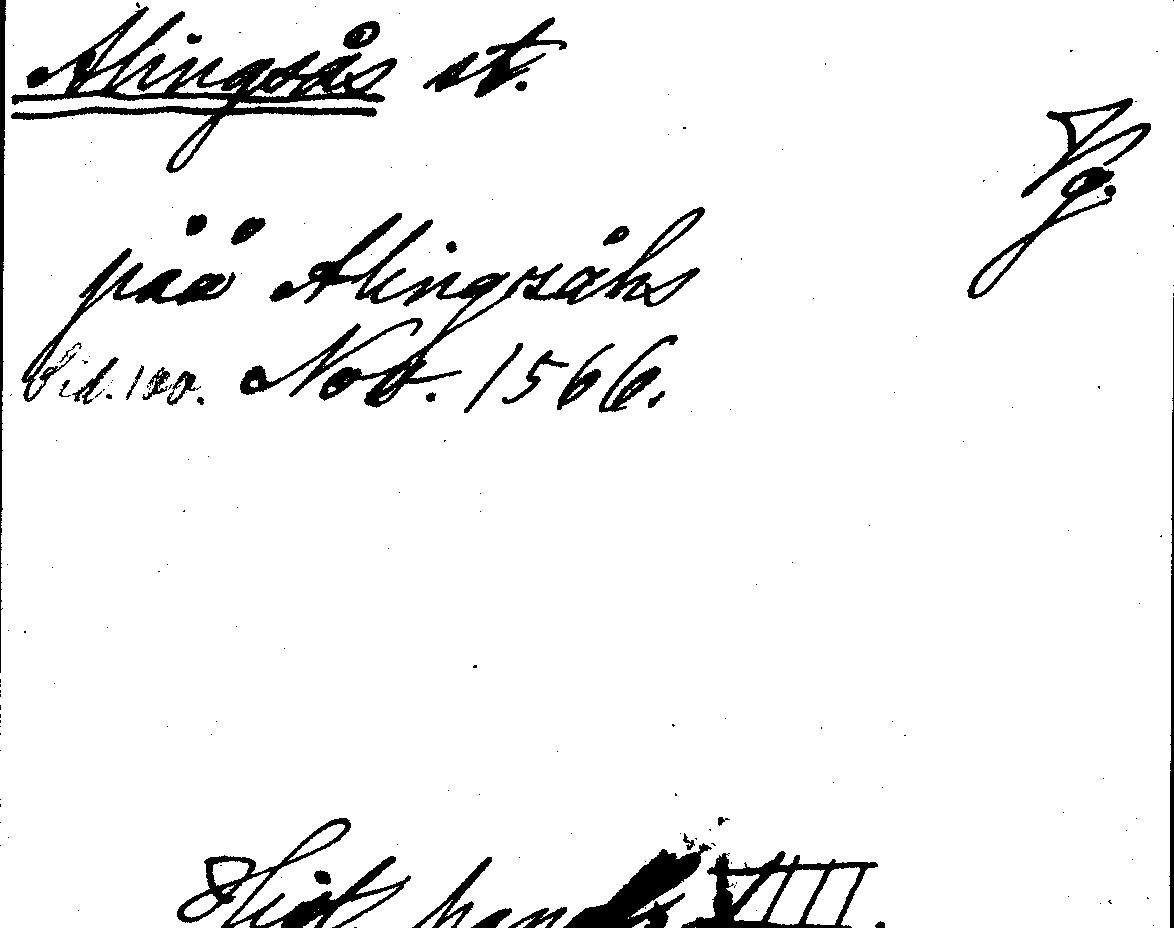 Alingsås st.
Vg.
på̊å Alingsåhs
Sid. 100. Nov. 1566.
Hist. handl. VIII.